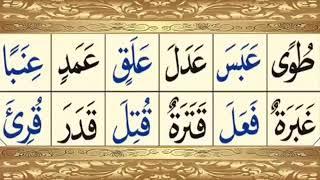 طُوًى عَبَسَ عَدَلَ عَلَقٍ عَمَدٍ عِنَبًا
غَبَرَةٌ فَعَلَ قَتَرَةٌ قُتِلَ قَدَرَ قُرِئَ